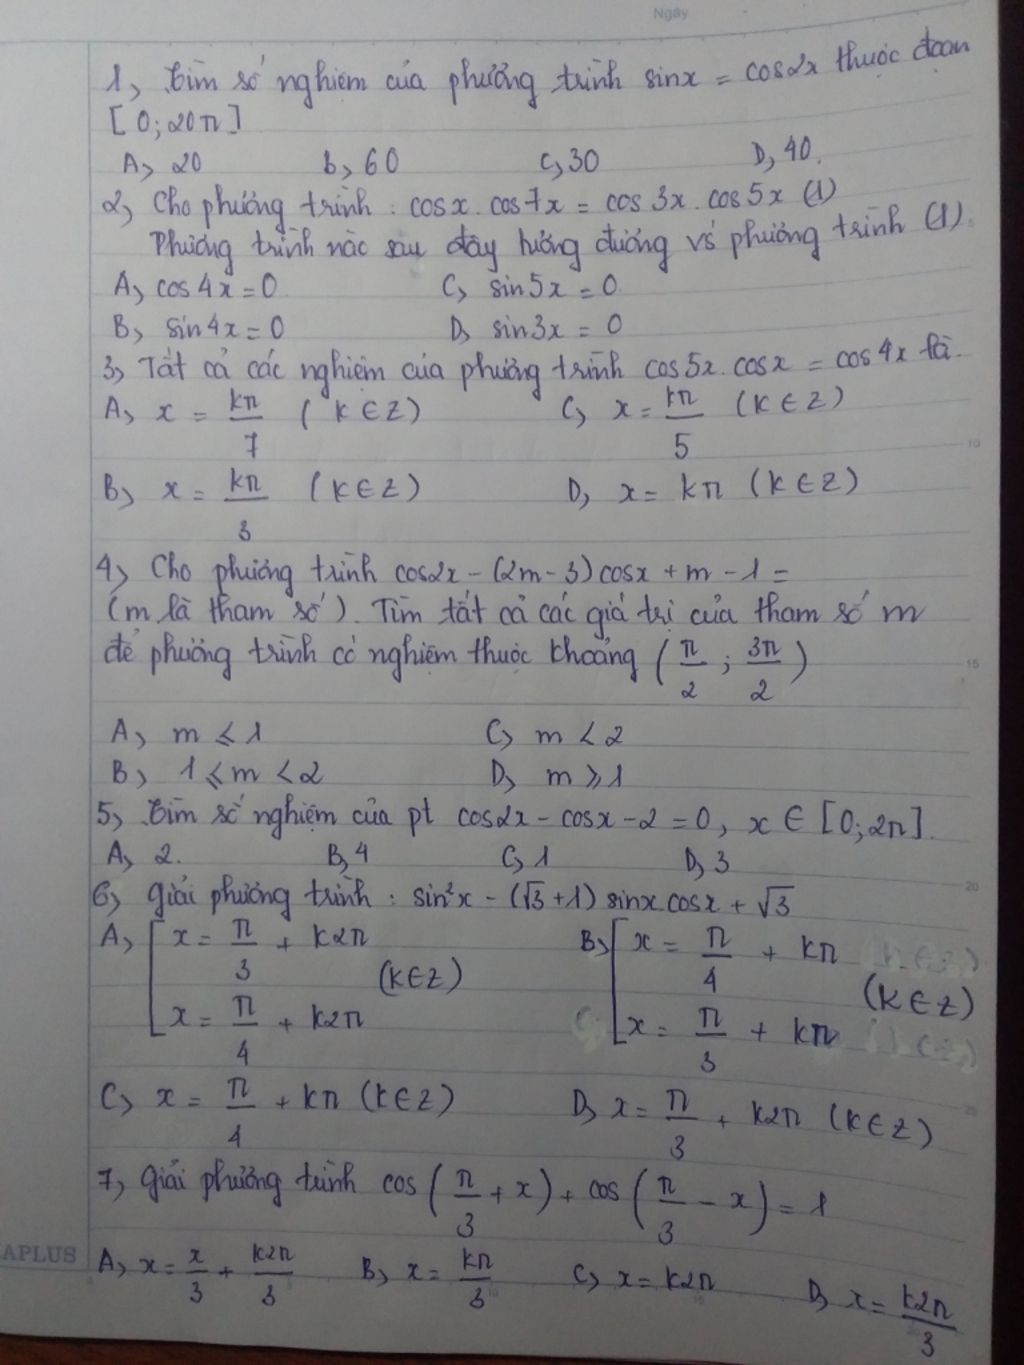 Ngày
1, Tìm số nghiệm của phương trình sinx = cos2x thuộc đoạn
[0; 20π]
A, 20 B, 60 C, 30 D, 40.
2, Cho phương trình: cosx.cos7x = cos3x.cos5x (1)
Phương trình nào sau đây tương đương vs phương trình (1).
A, cos4x = 0 C, sin5x = 0
B, sin4x = 0 D, sin3x = 0
3, Tất cả các nghiệm của phương trình cos5x.cosx = cos4x là.
A, x = kπ/7 (k ∈ Z) C, x = kπ/5 (k ∈ Z)
B, x = kπ/3 (k ∈ Z) D, x = kπ (k ∈ Z)
10
4, Cho phương trình cos2x - (2m - 3)cosx + m - 1 =
(m là tham số). Tìm tất cả các giá trị của tham số m
để phương trình có nghiệm thuộc khoảng (π/2; 3π/2)
15
A, m ≤ 1 C, m < 2
B, 1 ≤ m < 2 D, m ≥ 1
5, Tìm số nghiệm của pt cos2x - cosx - 2 = 0, x ∈ [0; 2π].
A, 2. B, 4 C, 1 D, 3
20
6, Giải phương trình: sin²x - (√3 + 1) sinx.cosx + √3
A, [x = π/3 + k2π B, [x = π/4 + kπ
(k∈Z) (k∈Z)
x = π/4 + k2π x = π/3 + kπ
C, x = π/4 + kπ (k∈Z) D, x = π/3 + k2π (k∈Z)
7, Giải phương trình cos(π/3 + x) + cos(π/3 - x) = 1
APLUS
A, x = x/3 + k2π/3 B, x = kπ/3 C, x = k2π D, x = k2π/3